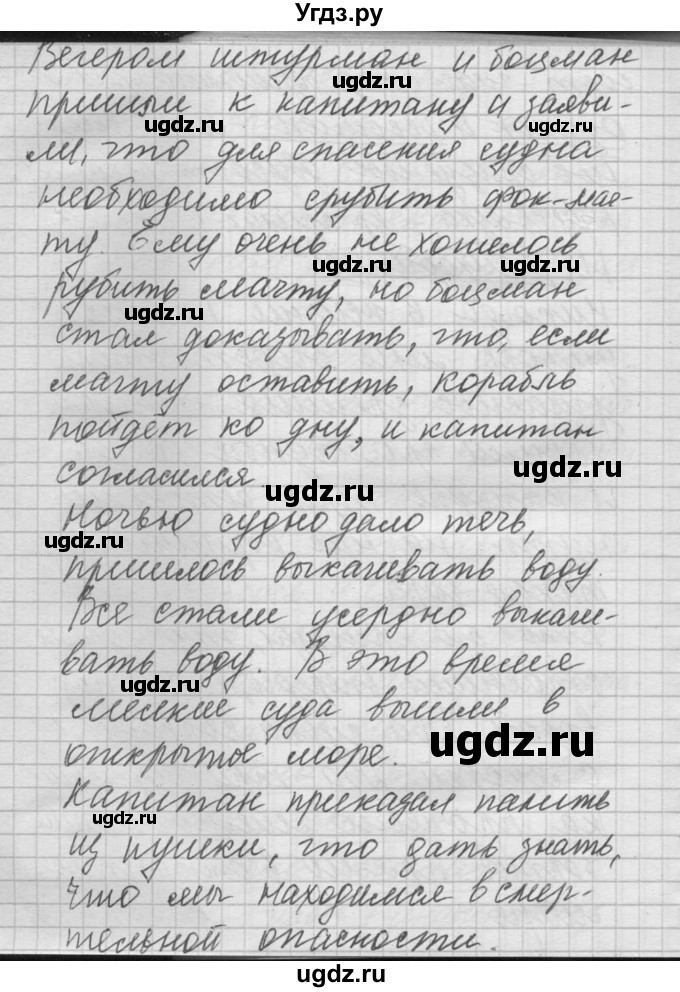 Угдз.ру
Вечером штурман и боцман
пришли к капитану и заяви-
ли, что для спасения судна
необходимо срубить фок-мач-
ту. Ему очень не хотелось
рубить мачту, но боцман
стал доказывать, что, если
мачту оставить, корабль
пойдёт ко дну, и капитан
согласился
Ночью судно дало течь,
пришлось выкачивать воду.
Все стали усердно выкачи-
вать воду. В это время
мелкие суда вышли в
открытое море.
Капитан приказал палить
из пушки, что дать знать,
что мы находимся в смер-
тельной опасности.
ugdz.ru
ugdz.ru
ugdz.ru
ugdz.ru
ugdz.ru
ugdz.ru
ugdz.ru
ugdz.ru
ugdz.ru
ugdz.ru
ugdz.ru
ugdz.ru
ugdz.ru